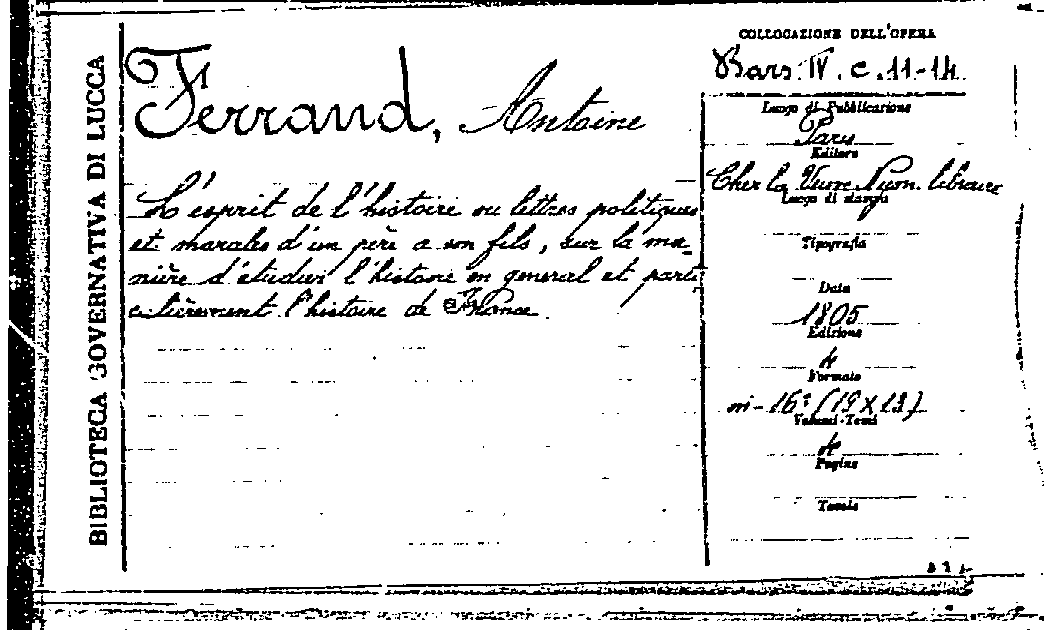 BIBLIOTECA GOVERNATIVA DI LUCCA
Ferrand, Antoine
L'esprit de l'histoire ou lettres politiques
et morales d'un père a son fils, sur la ma-
nière d'étudier l'histoire en general et parti
culièrement l'histoire de France.
COLLOCAZIONE DELL'OPERA
Bars. IV. c. 11-14
Luogo di Pubblicazione
Paris
Editore
Chez la Veuve Nyon. libraire
Luogo di stampa
Tipografia
Data
1805
Edizione
4
Formato
in-16° (19 x 13)
Volumi-Tomi
4
Pagine
Tavole